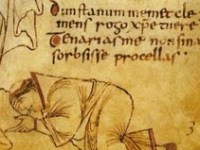 Dunstanum memet cle
mens rogo xpe tuere
Tenarias me non sinas
sorbsisse procellas